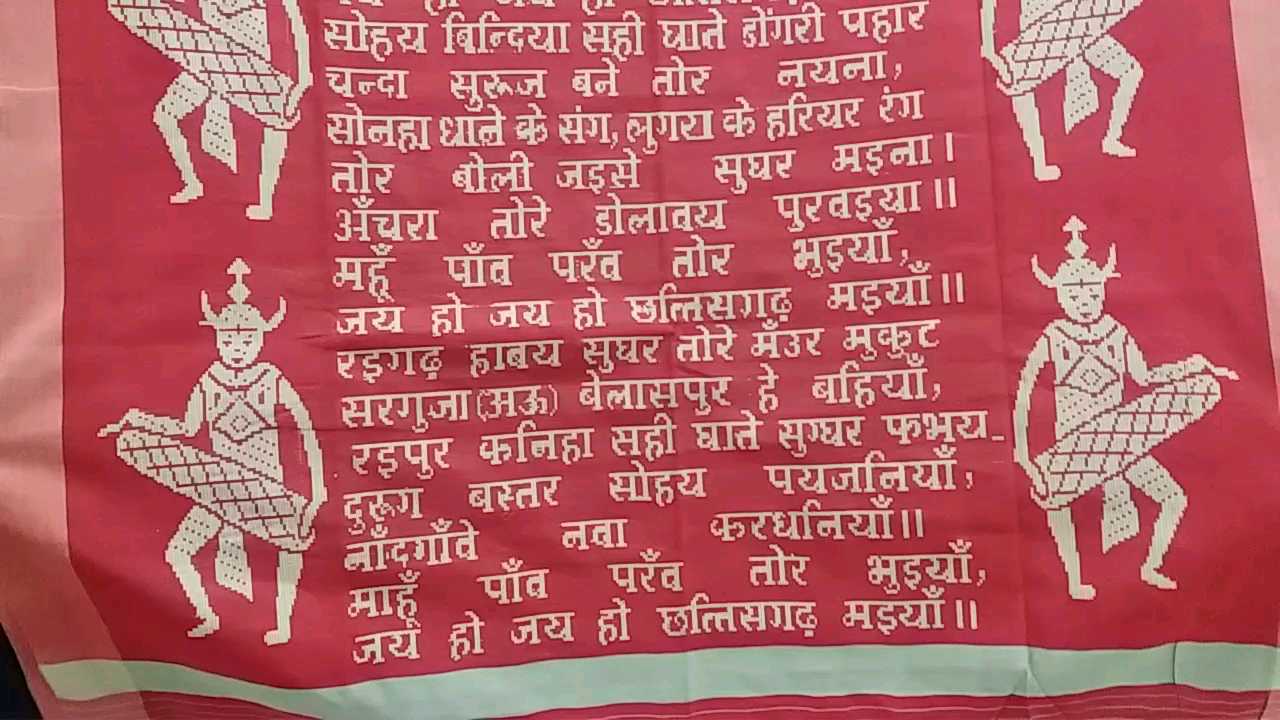 सोहय बिन्दिया सही घाते डोंगरी पहार
चन्दा सुरूज बने तोर नयना,
सोनहा धाने के संग, लुगरा के हरियर रंग
तोर बोली जइसे सुघर मइना।
अँचरा तोरे डोलावय पुरवइया॥
महूँ पाँव परँव तोर भुइयाँ,
जय हो जय हो छत्तिसगढ़ मइयाँ॥
रइगढ़ हाबय सुघर तोरे मँउर मुकुट
सरगुजा (अऊ) बेलासपुर हे बहियाँ,
रइपुर कनिहा सही घाते सुग्घर फभय_
दुरूग बस्तर सोहय पयजनियाँ,
नाँदगाँवे नवा करधनियाँ॥
माहूँ पाँव परँव तोर भुइयाँ,
जय हो जय हो छत्तिसगढ़ मइयाँ॥